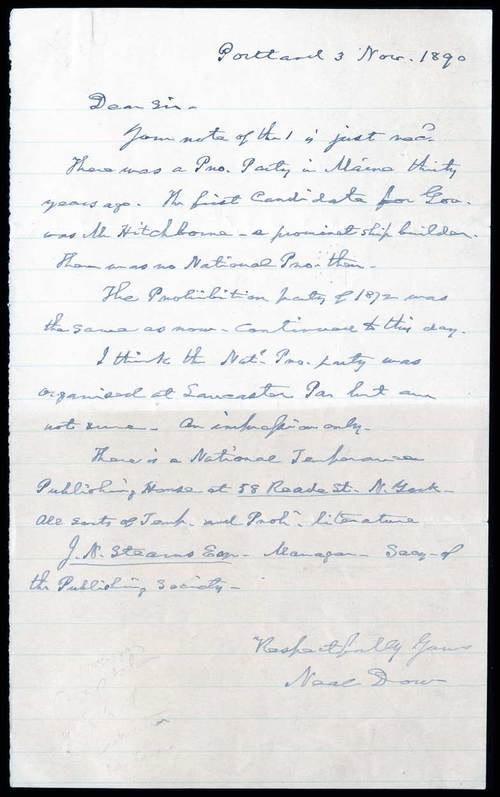 Portland 3 Nov. 1890
Dear Sir -
Your note of the 1 is just rec'd.
There was a Pro. Party in Maine thirty
years ago. The first Candidate for Gov.
was Mr Hitchborne - a prominent ship builder.
There was no National Pro. then -
The Prohibition party of 1872 was
the same as now - continued to this day.
I think the Nat'l Pro. party was
organised at Lancaster Pa. but am
not sure - An impression only.
There is a National Temperance
Publishing House at 58 Reade St - N. York -
All sorts of Temp. and Proh'n. literature
J. N. Stearns Esqr - Manager - Secy - of
the Publishing Society -
Respectfully Yours
Neal Dow